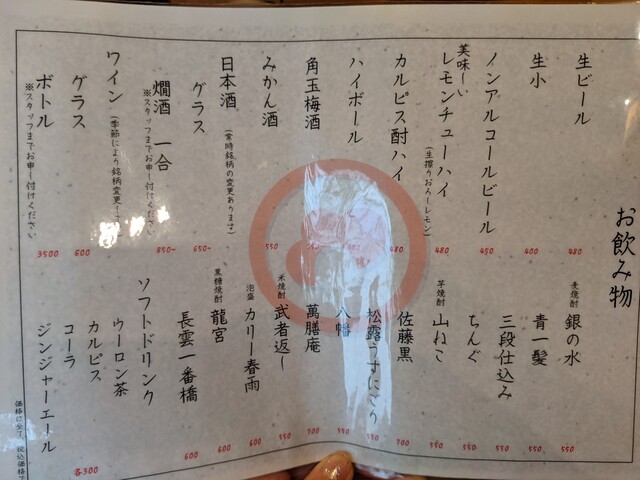 お飲み物
生ビール 480
生小 400
ノンアルコールビール 450
美味しーい
レモンチューハイ 480
(生搾りおろしレモン)
カルピス酎ハイ 480
ハイボール
角玉梅酒
みかん酒 550
日本酒
(常時銘柄の変更あります)
グラス 650~
燗酒 一合 850~
※スタッフまでお申し付けください
ワイン
(季節により銘柄変更
グラス 600
ボトル 3500
※スタッフまでお申し付けください
麦焼酎
銀の水 550
青一髪 550
三段仕込み 550
ちんぐ 550
芋焼酎
山ねこ 550
佐藤黒 700
松露うすにごり 550
八幡 550
萬膳庵 700
米焼酎
武者返し 550
泡盛
カリー春雨 600
黒糖焼酎
龍宮 600
長雲一番橋 600
ソフトドリンク
ウーロン茶
カルピス
コーラ 各300
ジンジャーエール